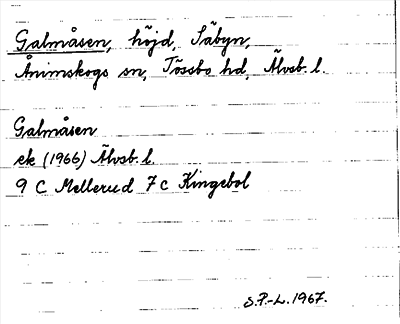 Galmåsen, höjd, Säbyn,
Ånimskogs sn, Tössbo hd, Älvsb. l.
Galmåsen
ek (1966) Älvsb. l.
9 C Mellerud 7 c Kingebol
S.P.-L. 1967.